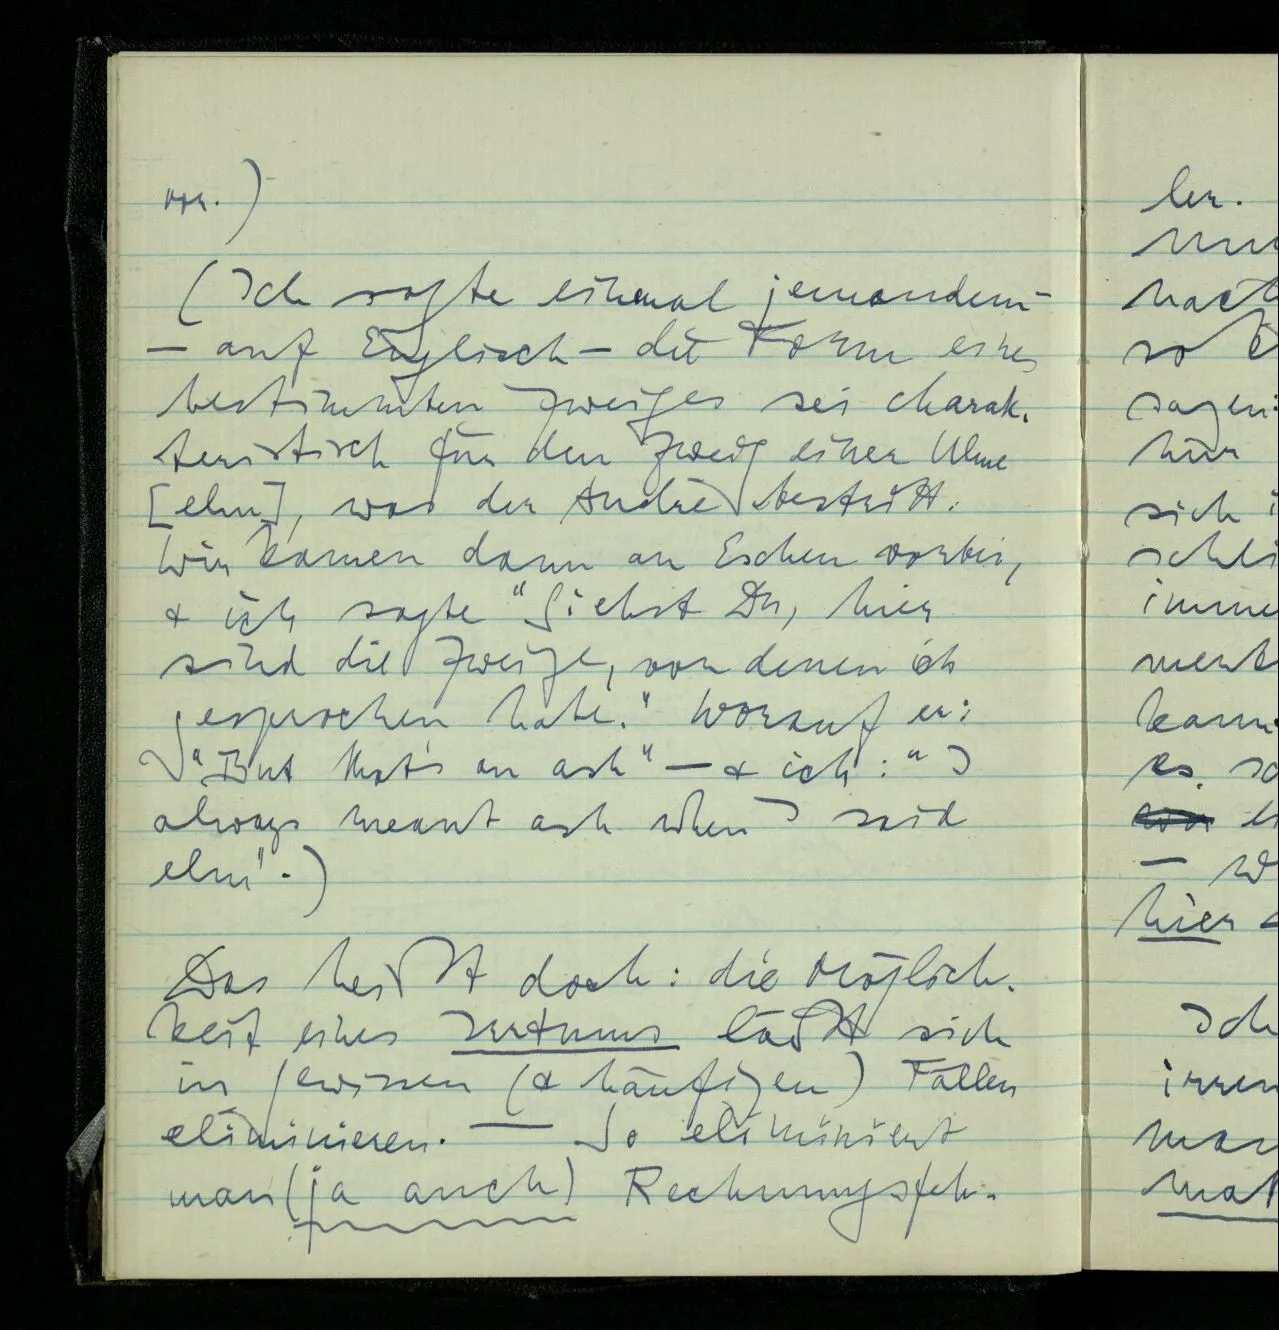 vor.)
(Ich sagte einmal jemandem
– auf Englisch – die Form eines
bestimmten Zweiges sei charak-
teristisch für den Zweig einer Ulme
[elm], was der Andre bestritt.
Wir kamen dann an Eschen vorbei,
& ich sagte "Siehst Du, hier
sind die Zweige, von denen ich
gesprochen habe." Worauf er:
"But that's an ash" – & ich: "I
always meant ash when I said
elm".)
Das heißt doch: die Möglich-
keit eines Irrtums läßt sich
in gewissen (& häufigen) Fällen
eliminieren. — So eliminiert
man (ja auch) Rechnungsfeh-
ler.
nach
so
sagen:
nur
sich
immer
kann
es
—
hier
Ich
irren